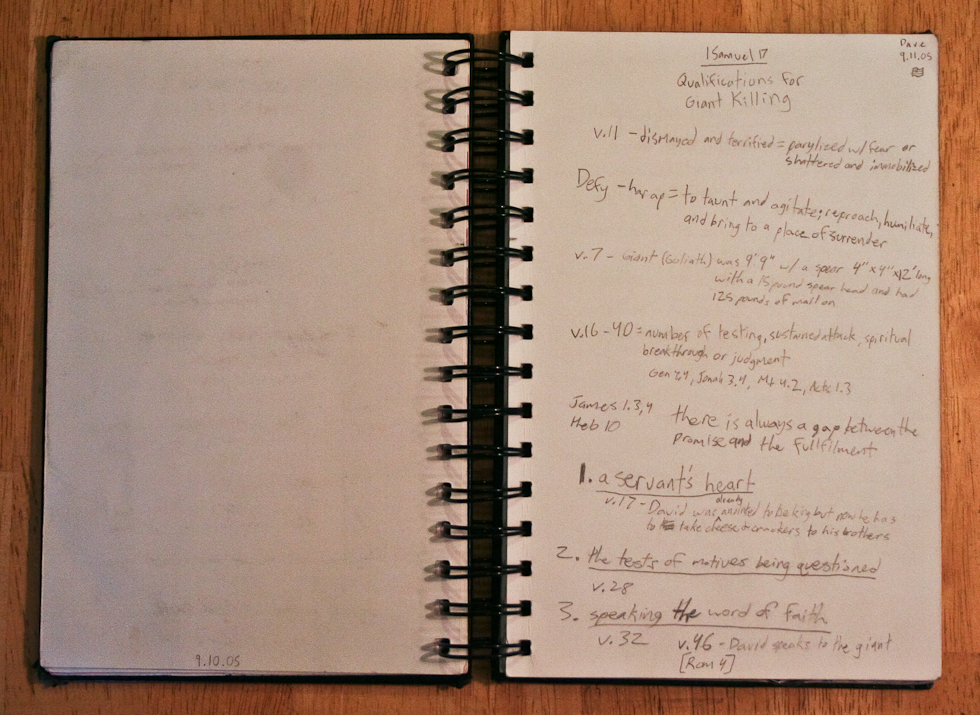 9.10.05
Dave
9.11.05
1 Samuel 17
Qualifications for
Giant Killing
v.11 - dismayed and terrified = parylized w/ fear or
shattered and immobilized
Defy - harap = to taunt and agitate; reproach, humiliate,
and bring to a place of surrender
v.7 - Giant (Goliath) was 9' 9" w/ a spear 4" x 4" x 12' long
with a 15 pound spear head and had
125 pounds of mail on
v.16 - 40 = number of testing, sustained attack, spiritual
breakthrough or judgment
Gen 7.4, Jonah 3.4, Mt 4.2, Acts 1.3
James 1.3,4
Heb 10
there is always a gap between the
promise and the fullfilment
1. a servant's heart
v.17 - David was already anointed to be king but now he has
to take cheese & crackers to his brothers
2. the tests of motives being questioned
v.28
3. speaking the word of faith
v.32 v.46 - David speaks to the giant
[Rom 4]